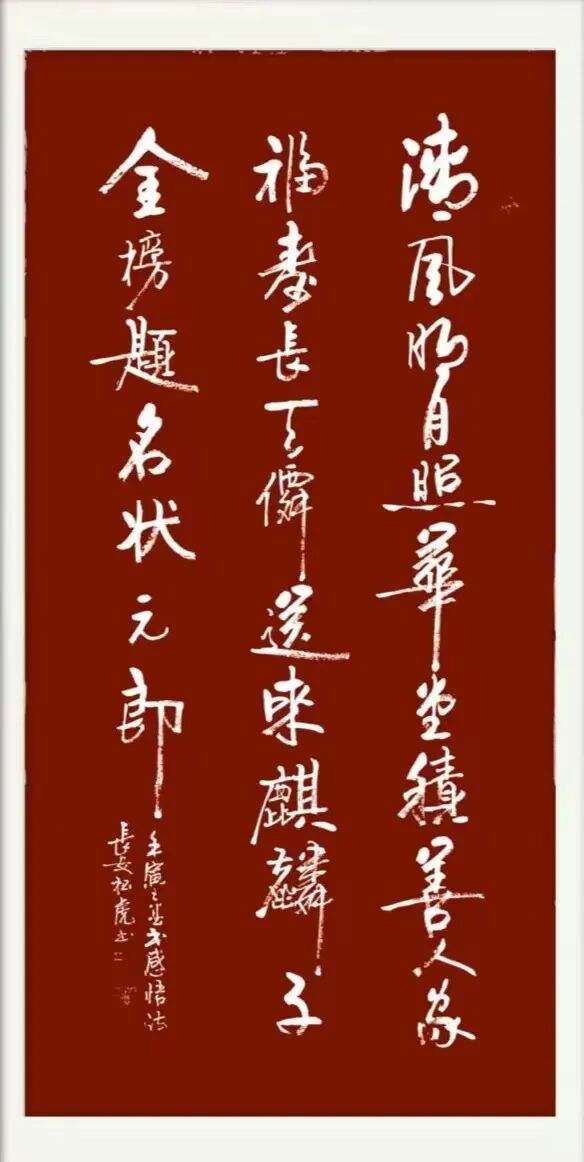 清風明月照華堂積善人家
福壽長天僊送來麒麟子
金榜題名狀元郎
壬寅之夏書感悟詩
長安松虎書